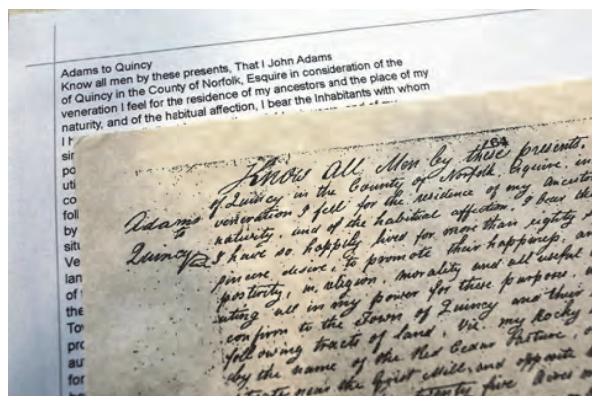 Adams to Quincy
Know all men by these presents, That I John Adams
of Quincy in the County of Norfolk, Esquire in consideration of the
veneration I feel for the residence of my ancestors and the place of my
naturity, and of the habitual affection, I bear the Inhabitants with whom
I h
sir
po
uti
co
foll
by
situ
Ve
lan
of
the
To
pro
au
for
64
Know All Men by these presents,
of Quincy in the County of Norfolk, Esquire, in
Adams
veneration I fell for the residence of my Ancestor
to
nativity, and of the habitual affection, I bear the
Quincy
I have so happily lived for more than eighty
sincere desire, to promote their happiness, an
postirity, in, religion, morality and all useful
uting all in my power for these purposes,
confirm to the Town of Quincy and their
following tracts of land, Viz. my Rocky
by the name of the Red Cedar Pasture
near the Grist Mill, and opposite
twenty five Acres